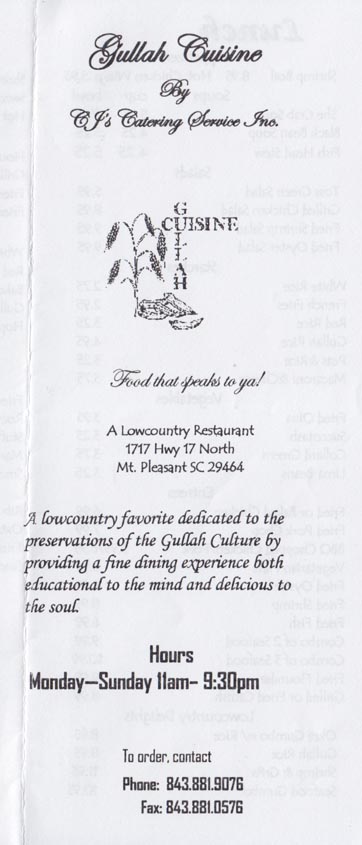 Gullah Cuisine
By
CJ's Catering Service Inc.
GULLAH
CUISINE
Food that speaks to ya!
A Lowcountry Restaurant
1717 Hwy 17 North
Mt. Pleasant SC 29464
A lowcountry favorite dedicated to the
preservations of the Gullah Culture by
providing a fine dining experience both
educational to the mind and delicious to
the soul.
Hours
Monday—Sunday 11am- 9:30pm
To order, contact
Phone: 843.881.9076
Fax: 843.881.0576